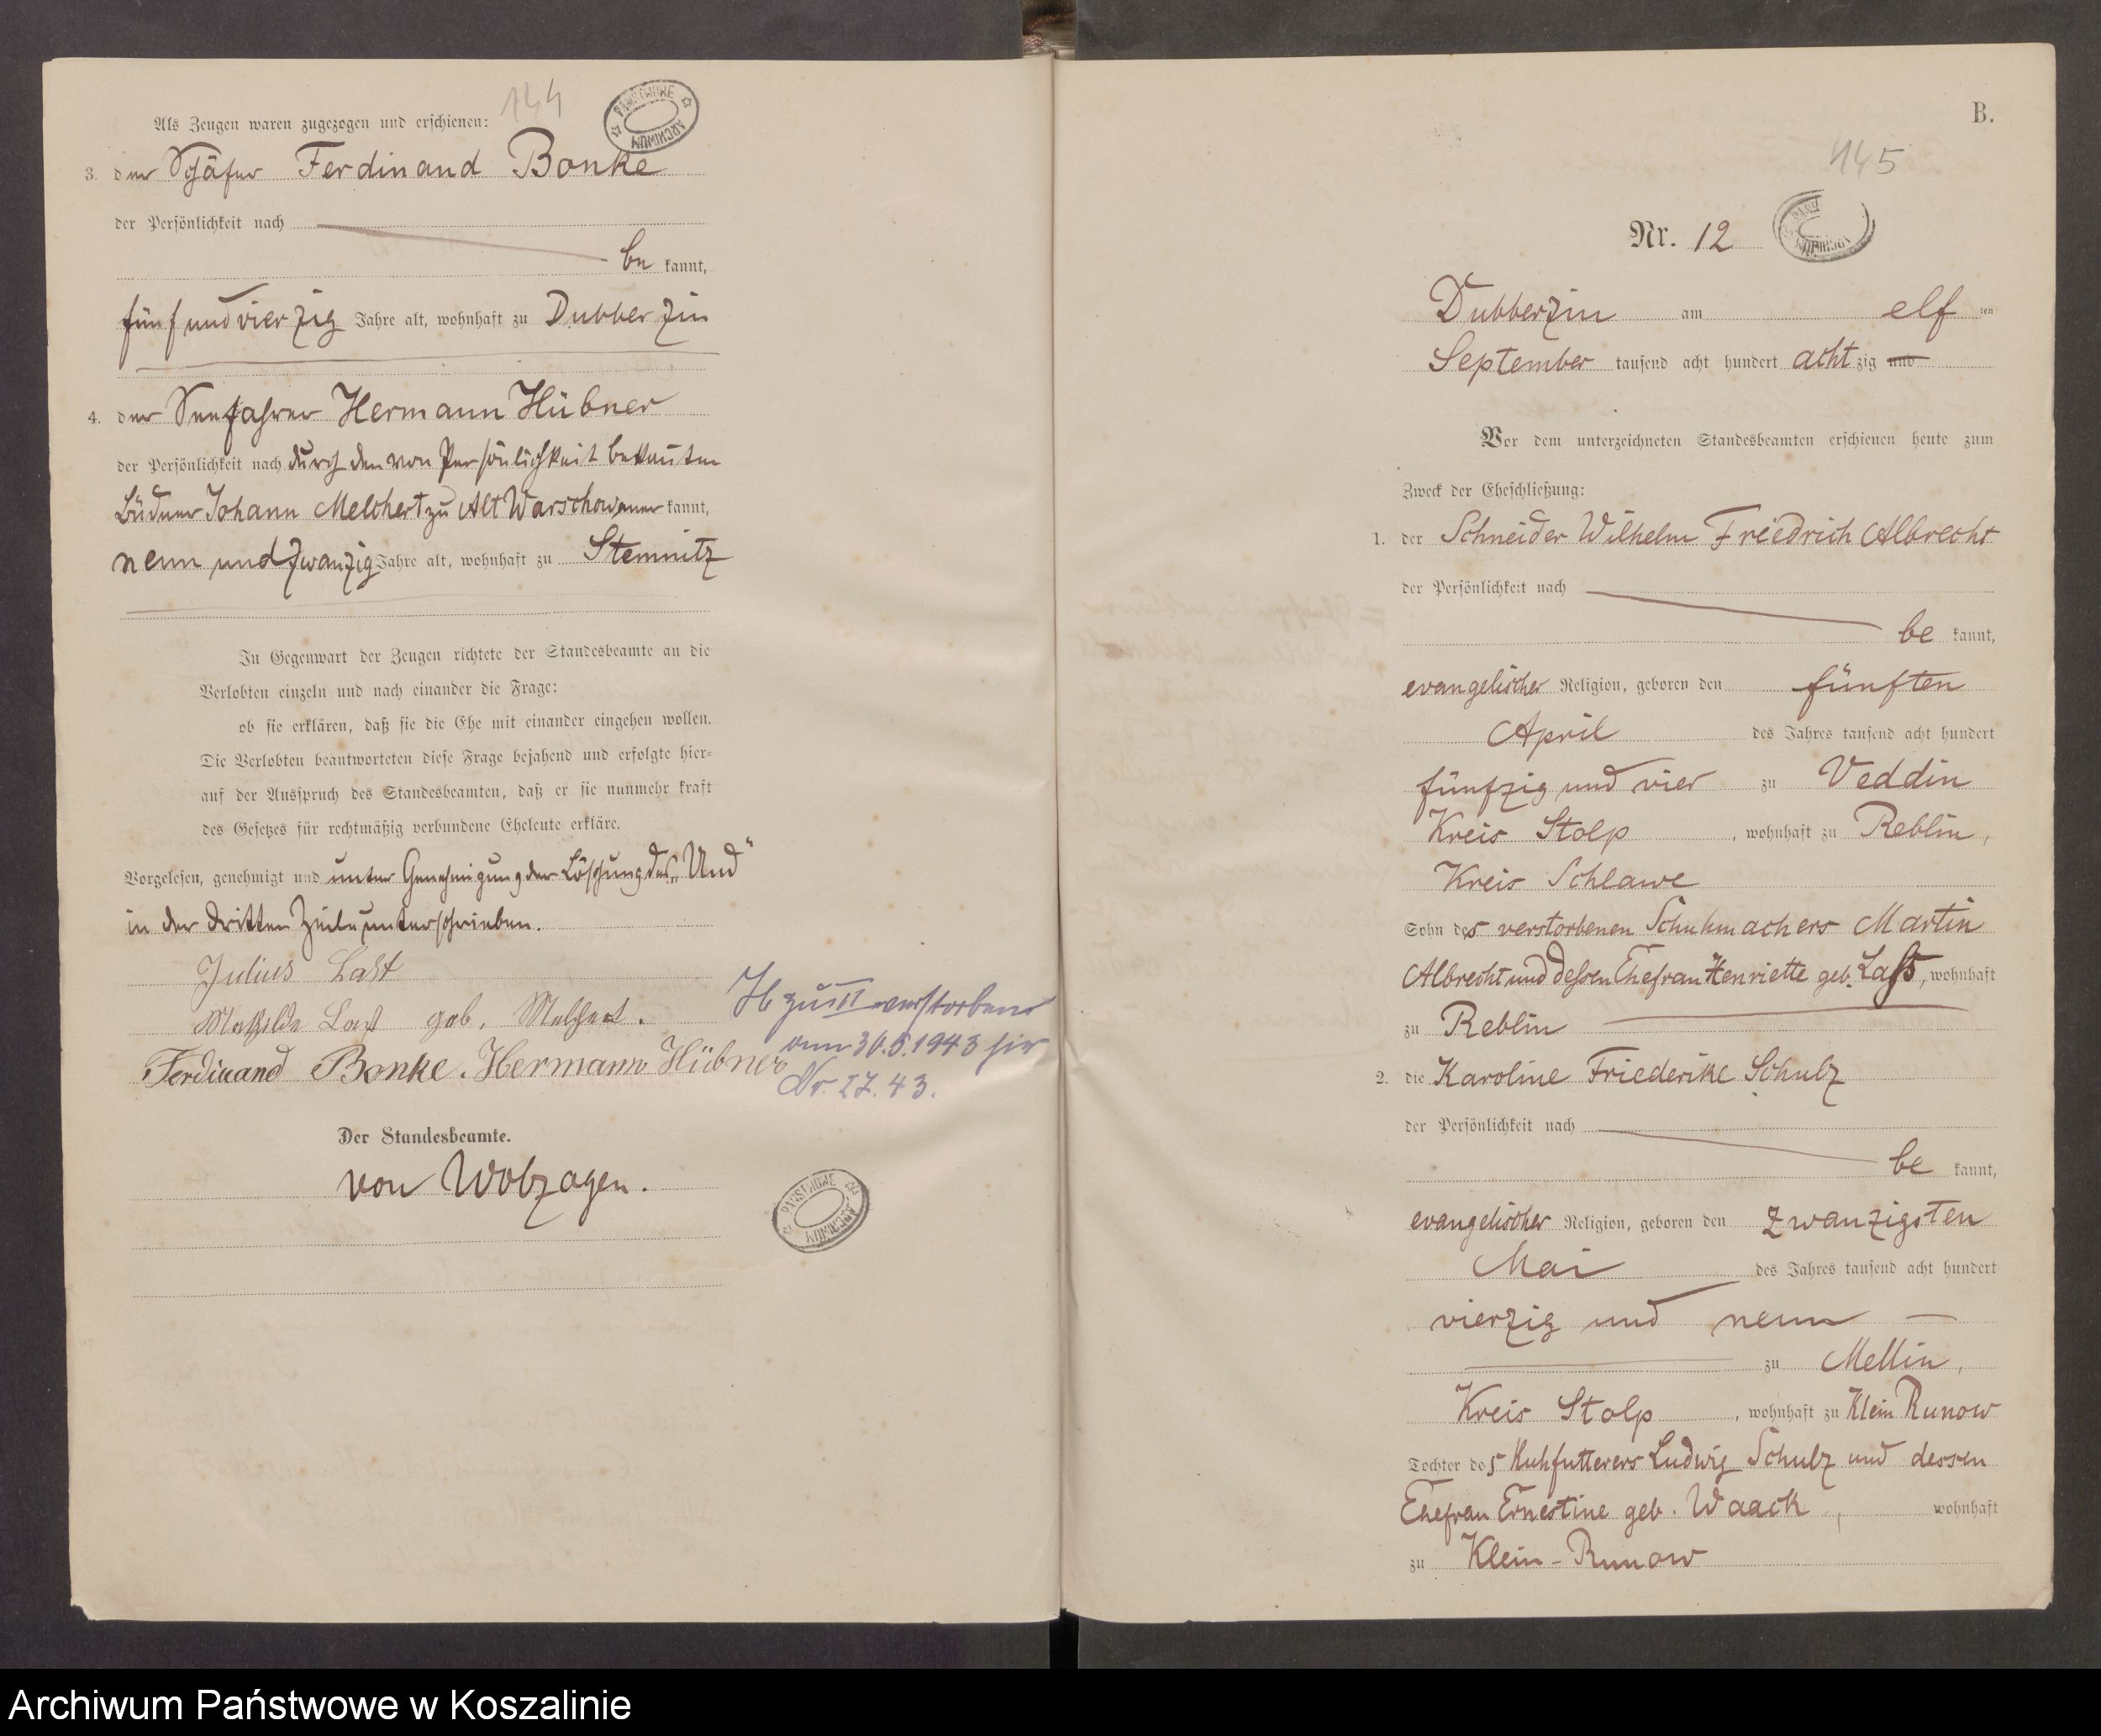 144
PAŃSTWOWE ARCHIWUM
Als Zeugen waren zugezogen und erschienen:
3. der Schäfer Ferdinand Bonke
der Persönlichkeit nach
be kannt,
fünf und vierzig Jahre alt, wohnhaft zu Dubberzin
4. der Seefahrer Hermann Hübner
der Persönlichkeit nach durch den von Persönlichkeit bekannten
Büdner Johann Melchert zu Alt Warschow aner kannt,
neun und zwanzig Jahre alt, wohnhaft zu Stemnitz
In Gegenwart der Zeugen richtete der Standesbeamte an die
Verlobten einzeln und nach einander die Frage:
ob sie erklären, daß sie die Ehe mit einander eingehen wollen.
Die Verlobten beantworteten diese Frage bejahend und erfolgte hier-
auf der Ausspruch des Standesbeamten, daß er sie nunmehr kraft
des Gesetzes für rechtmäßig verbundene Eheleute erkläre.
Vorgelesen, genehmigt und unter Genehmigung der Löschung des „Und"
in der dritten Zeile unterschrieben.
Julius Last
Mathilde Last geb. Melchert.
Ferdinand Bonke. Hermann Hübner
zu II verstorben
am 30.5.1943 hier
Nr. 27.43.
Der Standesbeamte.
von Wobzagen.
PAŃSTWOWE ARCHIWUM
B.
145
Nr. 12
Dubberzin am elf ten
September tausend acht hundert acht zig und
Vor dem unterzeichneten Standesbeamten erschienen heute zum
Zweck der Eheschließung:
1. der Schneider Wilhelm Friedrich Albrecht
der Persönlichkeit nach
be kannt,
evangelischer Religion, geboren den fünften
April des Jahres tausend acht hundert
fünfzig und vier zu Veddin
Kreis Stolp, wohnhaft zu Reblin,
Kreis Schlawe
Sohn des verstorbenen Schuhmachers Martin
Albrecht und dessen Ehefrau Henriette geb. Laß, wohnhaft
zu Reblin
2. die Karoline Friederike Schulz
der Persönlichkeit nach
be kannt,
evangelischer Religion, geboren den zwanzigsten
Mai des Jahres tausend acht hundert
vierzig und neun
zu Mellin,
Kreis Stolp, wohnhaft zu Klein Runow
Tochter des Kuhfutterers Ludwig Schulz und dessen
Ehefrau Ernestine geb. Waack, wohnhaft
zu Klein-Runow
Archiwum Państwowe w Koszalinie